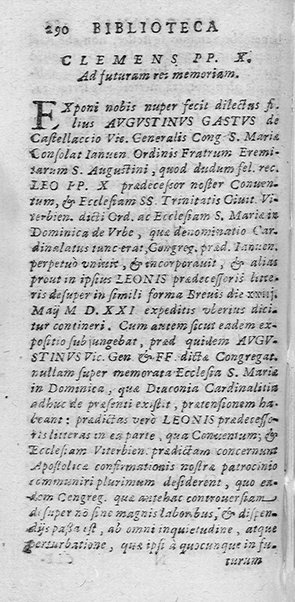 290 BIBLIOTECA
CLEMENS PP. X.
Ad futuram rei memoriam.
EXponi nobis nuper fecit dilectus fi-
lius AVGVSTINVS GASTVS de
Castellaccio Vic. Generalis Cong S. Mariæ
Consolat Ianuen Ordinis Fratrum Eremi-
tarum S. Augustini, quod dudum fel. rec.
LEO PP. X prædecessor noster Conven-
tum, & Ecclesiam SS. Trinitatis Civit. Vi-
terbien. dicti Ord. ac Ecclesiam S. Mariæ in
Dominica de Vrbe, quæ denominatio Car-
dinalatus tunc erat, Congreg. præd. Ianuen.
perpetuò univit, & incorporavit, & aliàs
prout in ipsius LEONIS prædecessoris litte-
ris desuper in simili forma Brevis die xxiij
Maij M D. XXI expeditis uberius dici-
tur contineri. Cum autem sicut eadem ex-
positio subjungebat, præd quidem AVGV-
STINVS Vic. Gen & FF. dictæ Congregat.
nullam super memorata Ecclesia S. Mariæ
in Dominica, quæ Diaconia Cardinalitia
adhuc de præsenti existit, prætensionem ha-
beant: prædictas verò LEONIS prædecesso-
ris litteras in ea parte, qua Conventum; &
Ecclesiam Viterbien. prædictam concernunt
Apostolicæ confirmationis nostræ patrocinio
communiri plurimum desiderent, quo ea-
dem Congreg. quæ antehac controversiam
desuper nō sine magnis laboribus, & dispen-
dijs passa est, ab omni inquietudine, atque
perturbatione, quæ ipsi à quocunque in fu-
turum